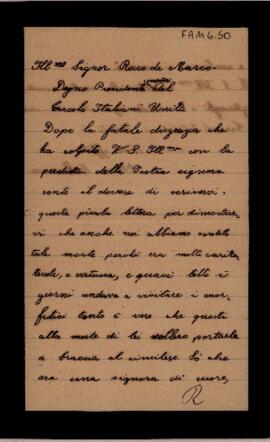 FAM6.50
Ill.mo Signor Rocco de Marco
Degno Presidente del
Circolo Italiani Uniti.
Dopo la fatale disgrazia che
ha colpito V. S. Ill.ma con la
perdita della Vostra signora
sento il dovere di scrivervi
questa piccola lettera per dimostrar
vi che anche noi abbiamo sentito
tale morte perchè era molto carita
tevole, e virtuosa, e quasi tutti i
giorni andava a visitare i mor
fetici tanto è vero che questi
alla morte di lei vollero portarla
a braccia al cimitero. Sò che
era una signora di cuore,
R